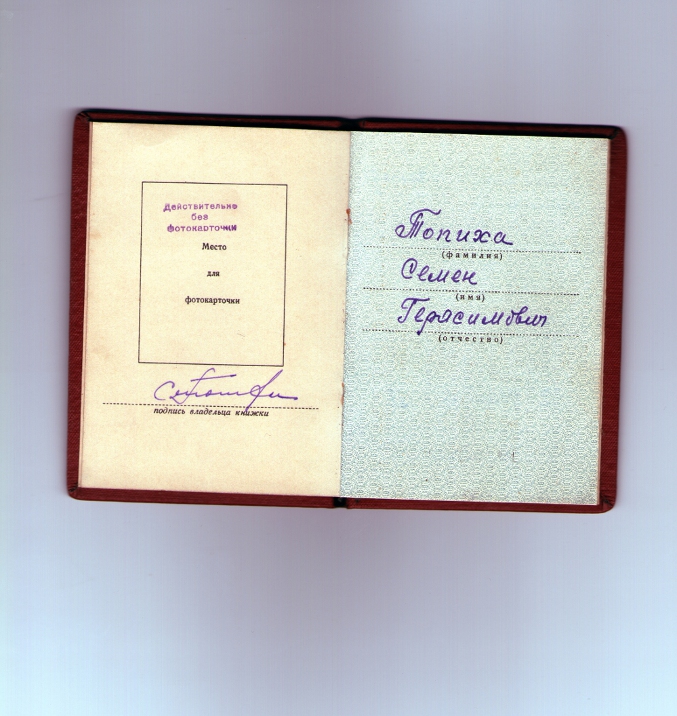 Действительно
без
фотокарточки
Место
для
фотокарточки
подпись владельца книжки
Топиха
(фамилия)
Семен
(имя)
Герасимович
(отчество)